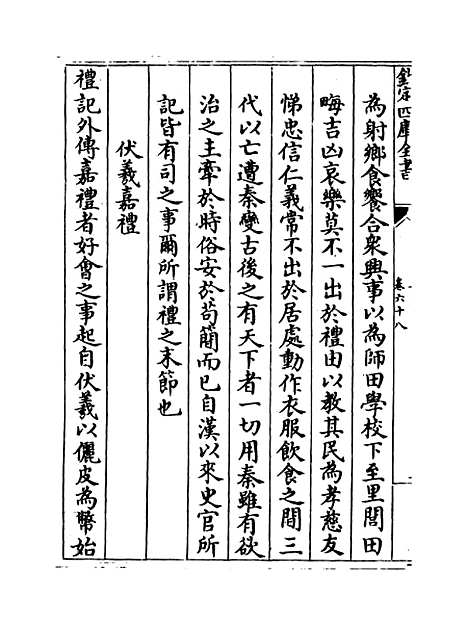 欽定四庫全書
卷六十八
為射鄉食饗合衆興事以為師田學校下至里閭田
畮吉凶哀樂莫不一出於禮由以教其民為孝慈友
悌忠信仁義常不出於居處動作衣服飲食之間三
代以亡遭秦變古後之有天下者一切用秦雖有欲
治之主牽於時俗安於苟簡而已自漢以來史官所
記皆有司之事爾所謂禮之末節也
伏羲嘉禮
禮記外傳嘉禮者好會之事起自伏羲以儷皮為幣始